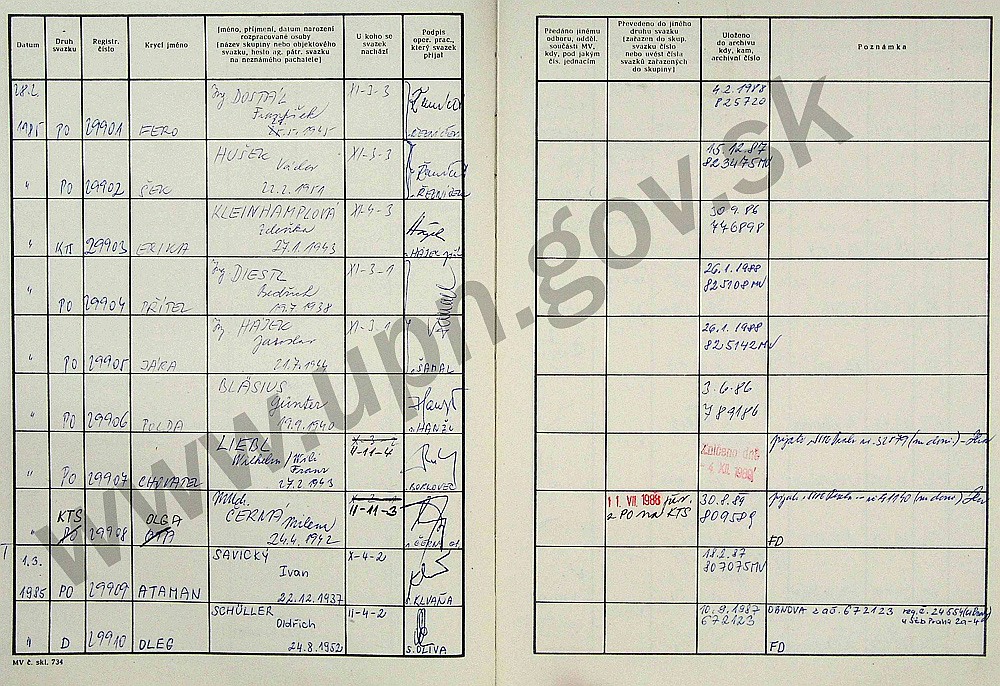 Datum
Druh svazku
Registr. číslo
Krycí jméno
Jméno, příjmení, datum narození
rozpracované osoby
[název skupiny nebo objektového
svazku, heslo ag. pátr. svazku
na neznámého pachatele]
U koho se
svazek
nachází
Podpis
oper. prac.,
který svazek
přijal
Předáno jinému
odboru, odděl.
součásti MV,
kdy, pod jakým
čís. jednacím
Převedeno do jiného
druhu svazku
[zařazen do skup.
svazku číslo
nebo uvést čísla
svazků zařazených
do skupiny]
Uloženo
do archivu
kdy, kam,
archivní číslo
Poznámka
28.2.
1985 PO 29901 FERO
Ing DOSTÁL
František
5. 1945
XI-3-3
4.2.1988
825720
" PO 29902 ŠEK
HUŠEK
Václav
22.2.1951
XI-3-3
ŘEZNÍČEK
15.12.87
823475MV
" KTI 29903 ERIKA
KLEINHAMPLOVÁ
Zdeňka
27.1.1943
XI-4-3
HÁJEK
30.9.86
776898
" PO 29904 PŘÍTEL
Ing DIESTL
Bedřich
19.7.1938
XI-3-1
26.1.1988
825108MV
" PO 29905 JÁRA
Ing HÁJEK
Jaroslav
21.7.1944
XI-3-1
ŠAMAL
26.1.1988
825142MV
" PO 29906 POLDA
BLÄSIUS
Günter
19.9.1940
HANŽL
3.6.86
789186
" PO 29907 CHOVATEL
LIEBL
Wilhelm/Wili
Franz
27.2.1943
II-11-4
Zničeno dne
- 4. XII. 1989
KTS
" PO 29908
OLGA
MUDr.
ČERNÁ
Milena
24.4.1942
II-11-3
ČERNÝ
11. VII. 1988
z PO na KTS
30.8.89
809589
FD
1.3.
1985 PO 29909 ATAMAN
SAVICKÝ
Ivan
22.12.1937
X-4-2
KLVAŇA
18.2.87
807075MV
" D 29910 OLEG
SCHÜLLER
Oldřich
24.8.1952
II-4-2
S. OLIVA
10.9.1987
672123
OBNOVA z a.č. 672123 reg.č. 24654
u StB Praha
FD
MV č. skl. 734
www.upn.gov.sk